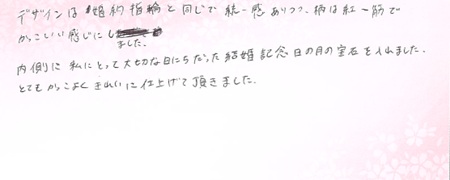 デザインは婚約指輪と同じで統一感ありつつ、柄は紅一筋で
かっこいい感じにしました。
内側に私にとって大切な日にちだった結婚記念日の月の宝石を入れました。
とてもかっこよくきれいに仕上げて頂きました。